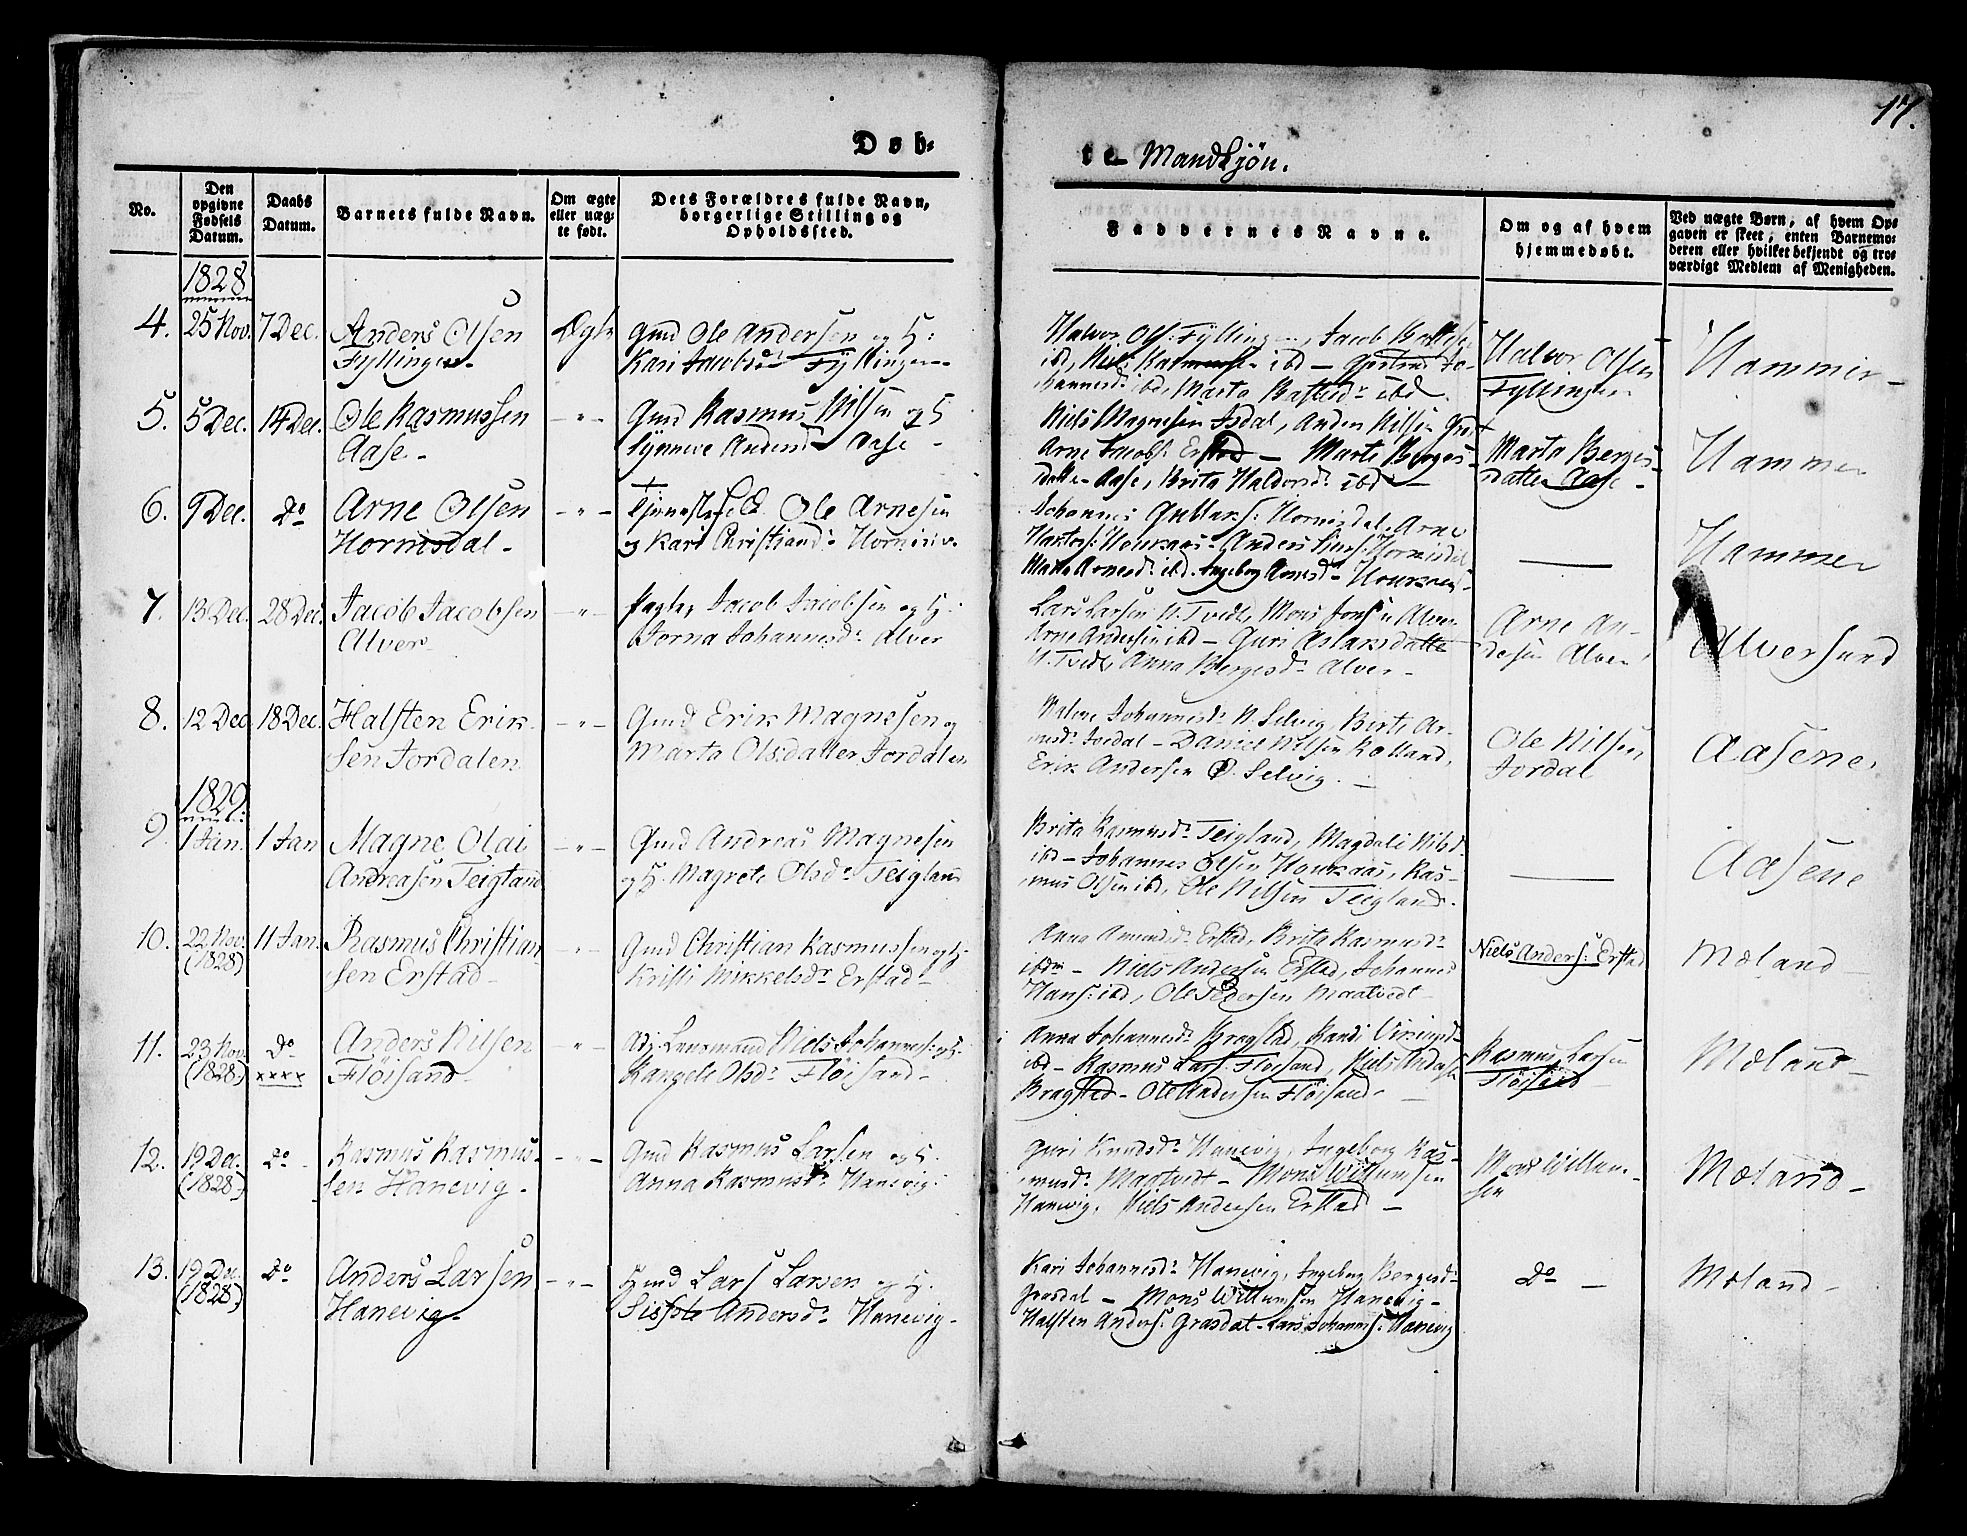 17.
Døb-
te Mandkjön.
No.
Den opgivne Fødsels Datum.
Daabs Datum.
Barnets fulde Navn.
Om ægte eller uægte født.
Dets Forældres fulde Navn, borgerlige Stilling og Opholdssted.
Faddernes Navne.
Om og af hvem hjemmedøbt.
Ved uægte Børn, af hvem Opgaven er skeet, enten Barnemoderen eller hvilket bekjendt og troværdigt Medlem af Menigheden.
1828
4. 25 Nov. 7 Dec. Anders Olsen Ægte Gmd Ole Andersen og H:
Fyllingen Kari Jacobsd Fyllingen
Halvor Ols: Fyllingen, Jacob
ibd, ibd
hannesd ibd, Marta ibd.
Halvor Olsen
Fyllingen
Hammer
5. 5 Dec. 14 Dec. Ole Rasmussen -"- Gmd Rasmus Nilsen og H:
Aase Synneve Andersd Aase
Niels Magnesen Isdal, Anders Nilsen
Arne Jacobs: Erstad - Marta Berges-
datter Aase, Brita Haldorsd: ibd
Marta Berges-
datter Aase
Hammer
6. 9 Dec. Do Arne Olsen -"- Ole Arnesen
Hornisdal og Kari Christiansd:
Johannes Gullaks: Hornisdal, Arne
Anders Hornisdal
Marta Arnesd: ibd. Ingeborg
Hammer
7. 13 Dec. 28 Dec. Jacob Jacobsen -"- Jacob Jacobsen og H:
Alver Johannesd: Alver
Lars Larsen N. Tvedt, Mons Alver
Arne Andersen ibd - Guri Aslaksdatter
N. Tvedt, Anna Bergesd: Alver
Arne An-
dersen Alver
Alversund
8. 12 Dec 18 Dec. Halsten Erik- -"- Gmd Erik Magnesen og
sen Jordalen Marta Olsdatter Jordalen
Johannesd: N. Selvig,
Jordal - Daniel Nilsen
Erik Andersen Ø. Selvig.
Ole Nilsen
Jordal
Aasene
1829
9. 1 Jan. 1 Jan Magne Olai -"- Gmd Andreas Magnesen
Andreasen Teigland og H. Magrete Olsd: Teigland
Brita Rasmusd: Teigland, Magdeli Nilsd:
ibd - Johannes Olsen Houkaas, Ras-
mus Olsen ibd, Ole Nilsen Teigland.
Aasene
10. 22 Nov. 11 Jan. Rasmus Christian- -"- Gmd Christian Rasmussen og H:
(1828) sen Erstad Kristi Mikkelsd: Erstad
Anna Erstad, Brita Rasmusd:
ibdm - Niels Andersen Erstad, Johannes
Hans: ibd, Ole Pedersen Maatvedt
Niels Anders: Erstad
Mæland
11. 23 Nov. Do Anders Nilsen -"- Adj. Lensmand Niels Johannes: og H:
(1828) xxxx Flöisand Rangele Olsd: Flöisand
Anna Johannesd: Bragstad, Randi
ibd - Rasmus Lars: Flöisand, Niels
Bragstad - Ole Andersen Flöisand
Rasmus Larsen
Flöisand
Mæland
12. 19 Dec. Do Rasmus Rasmus- -"- Gmd Rasmus Larsen og H.
(1828) sen Hanevig Anna Rasmusd: Hanevig
Guri Knudsd: Hanevig, Ingeborg Ras-
musd: Maatvedt - Mons Willumsen
Hanevig, Niels Andersen Erstad
Mons Willum-
sen
Mæland
13. 19 Dec. Do Anders Larsen -"- Gmd Lars Larsen og H.
(1828) Hanevig Andersd: Hanevig
Kari Johannesd: Hanevig, Ingeborg Bergesd:
Grasdal - Mons Willumsen Hanevig
Halsten Anders: Grasdal - Lars Johannes: Hanevig
Do
Mæland